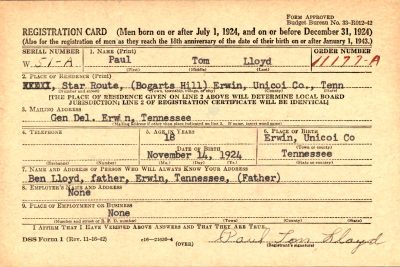 FORM APPROVED
Budget Bureau No. 33-R012-42
REGISTRATION CARD (Men born on or after July 1, 1924, and on or before December 31, 1924)
(Also for the registration of men as they reach the 18th anniversary of the date of their birth on or after January 1, 1943.)
SERIAL NUMBER 1. NAME (Print) ORDER NUMBER
W 51-A Paul Tom Lloyd 11177-A
(First) (Middle) (Last)
2. PLACE OF RESIDENCE (Print)
Star Route, (Bogarts Hill) Erwin, Unicoi Co., Tenn
(Number and street) (Town, township, village, or city) (County) (State)
[THE PLACE OF RESIDENCE GIVEN ON LINE 2 ABOVE WILL DETERMINE LOCAL BOARD
JURISDICTION; LINE 2 OF REGISTRATION CERTIFICATE WILL BE IDENTICAL]
3. MAILING ADDRESS
Gen Del. Erwin, Tennessee
[Mailing address if other than place indicated on line 2. If same, insert word same]
4. TELEPHONE 5. AGE IN YEARS 6. PLACE OF BIRTH
18 Erwin, Unicoi Co
DATE OF BIRTH (Town or county)
November 14, 1924 Tennessee
(Mo.) (Day) (Yr.) (State or country)
7. NAME AND ADDRESS OF PERSON WHO WILL ALWAYS KNOW YOUR ADDRESS
Ben Lloyd, father, Erwin, Tennessee, (Father)
8. EMPLOYER'S NAME AND ADDRESS
None
9. PLACE OF EMPLOYMENT OR BUSINESS
None
(Number and street or R. F. D. number) (Town) (County) (State)
I AFFIRM THAT I HAVE VERIFIED ABOVE ANSWERS AND THAT THEY ARE TRUE.
DSS Form 1 (Rev. 11-16-42) (OVER) Paul Tom Lloyd
(Registrant's signature)